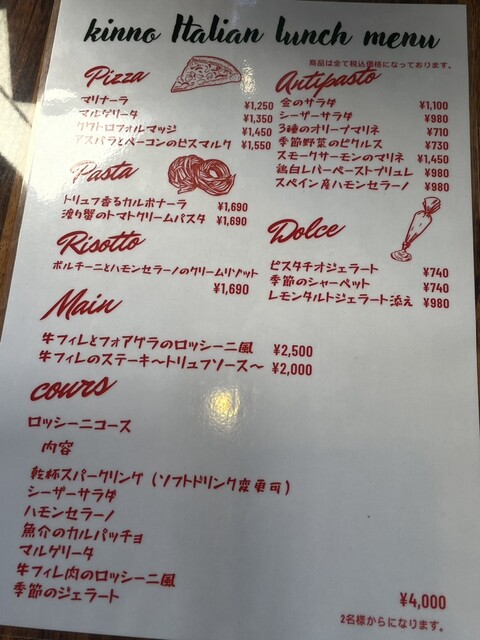 kinno Italian lunch menu
商品は全て税込価格になっております。
Pizza
マリナーラ ¥1,250
マルゲリータ ¥1,350
クワトロフォルマッジ ¥1,450
アスパラとベーコンのビスマルク ¥1,550
Pasta
トリュフ香るカルボナーラ ¥1,690
渡り蟹のトマトクリームパスタ ¥1,690
Risotto
ポルチーニとハモンセラーノのクリームリゾット
¥1,690
Antipasto
金のサラダ ¥1,100
シーザーサラダ ¥980
3種のオリーブマリネ ¥710
季節野菜のピクルス ¥730
スモークサーモンのマリネ ¥1,450
鶏白レバーペーストブリュレ ¥980
スペイン産ハモンセラーノ ¥980
Dolce
ピスタチオジェラート ¥740
季節のシャーベット ¥740
レモンタルトジェラート添え ¥980
Main
牛フィレとフォアグラのロッシーニ風 ¥2,500
牛フィレのステーキ〜トリュフソース〜 ¥2,000
cours
ロッシーニコース
内容
乾杯スパークリング(ソフトドリンク変更可)
シーザーサラダ
ハモンセラーノ
魚介のカルパッチョ
マルゲリータ
牛フィレ肉のロッシーニ風
季節のジェラート
¥4,000
2名様からになります。